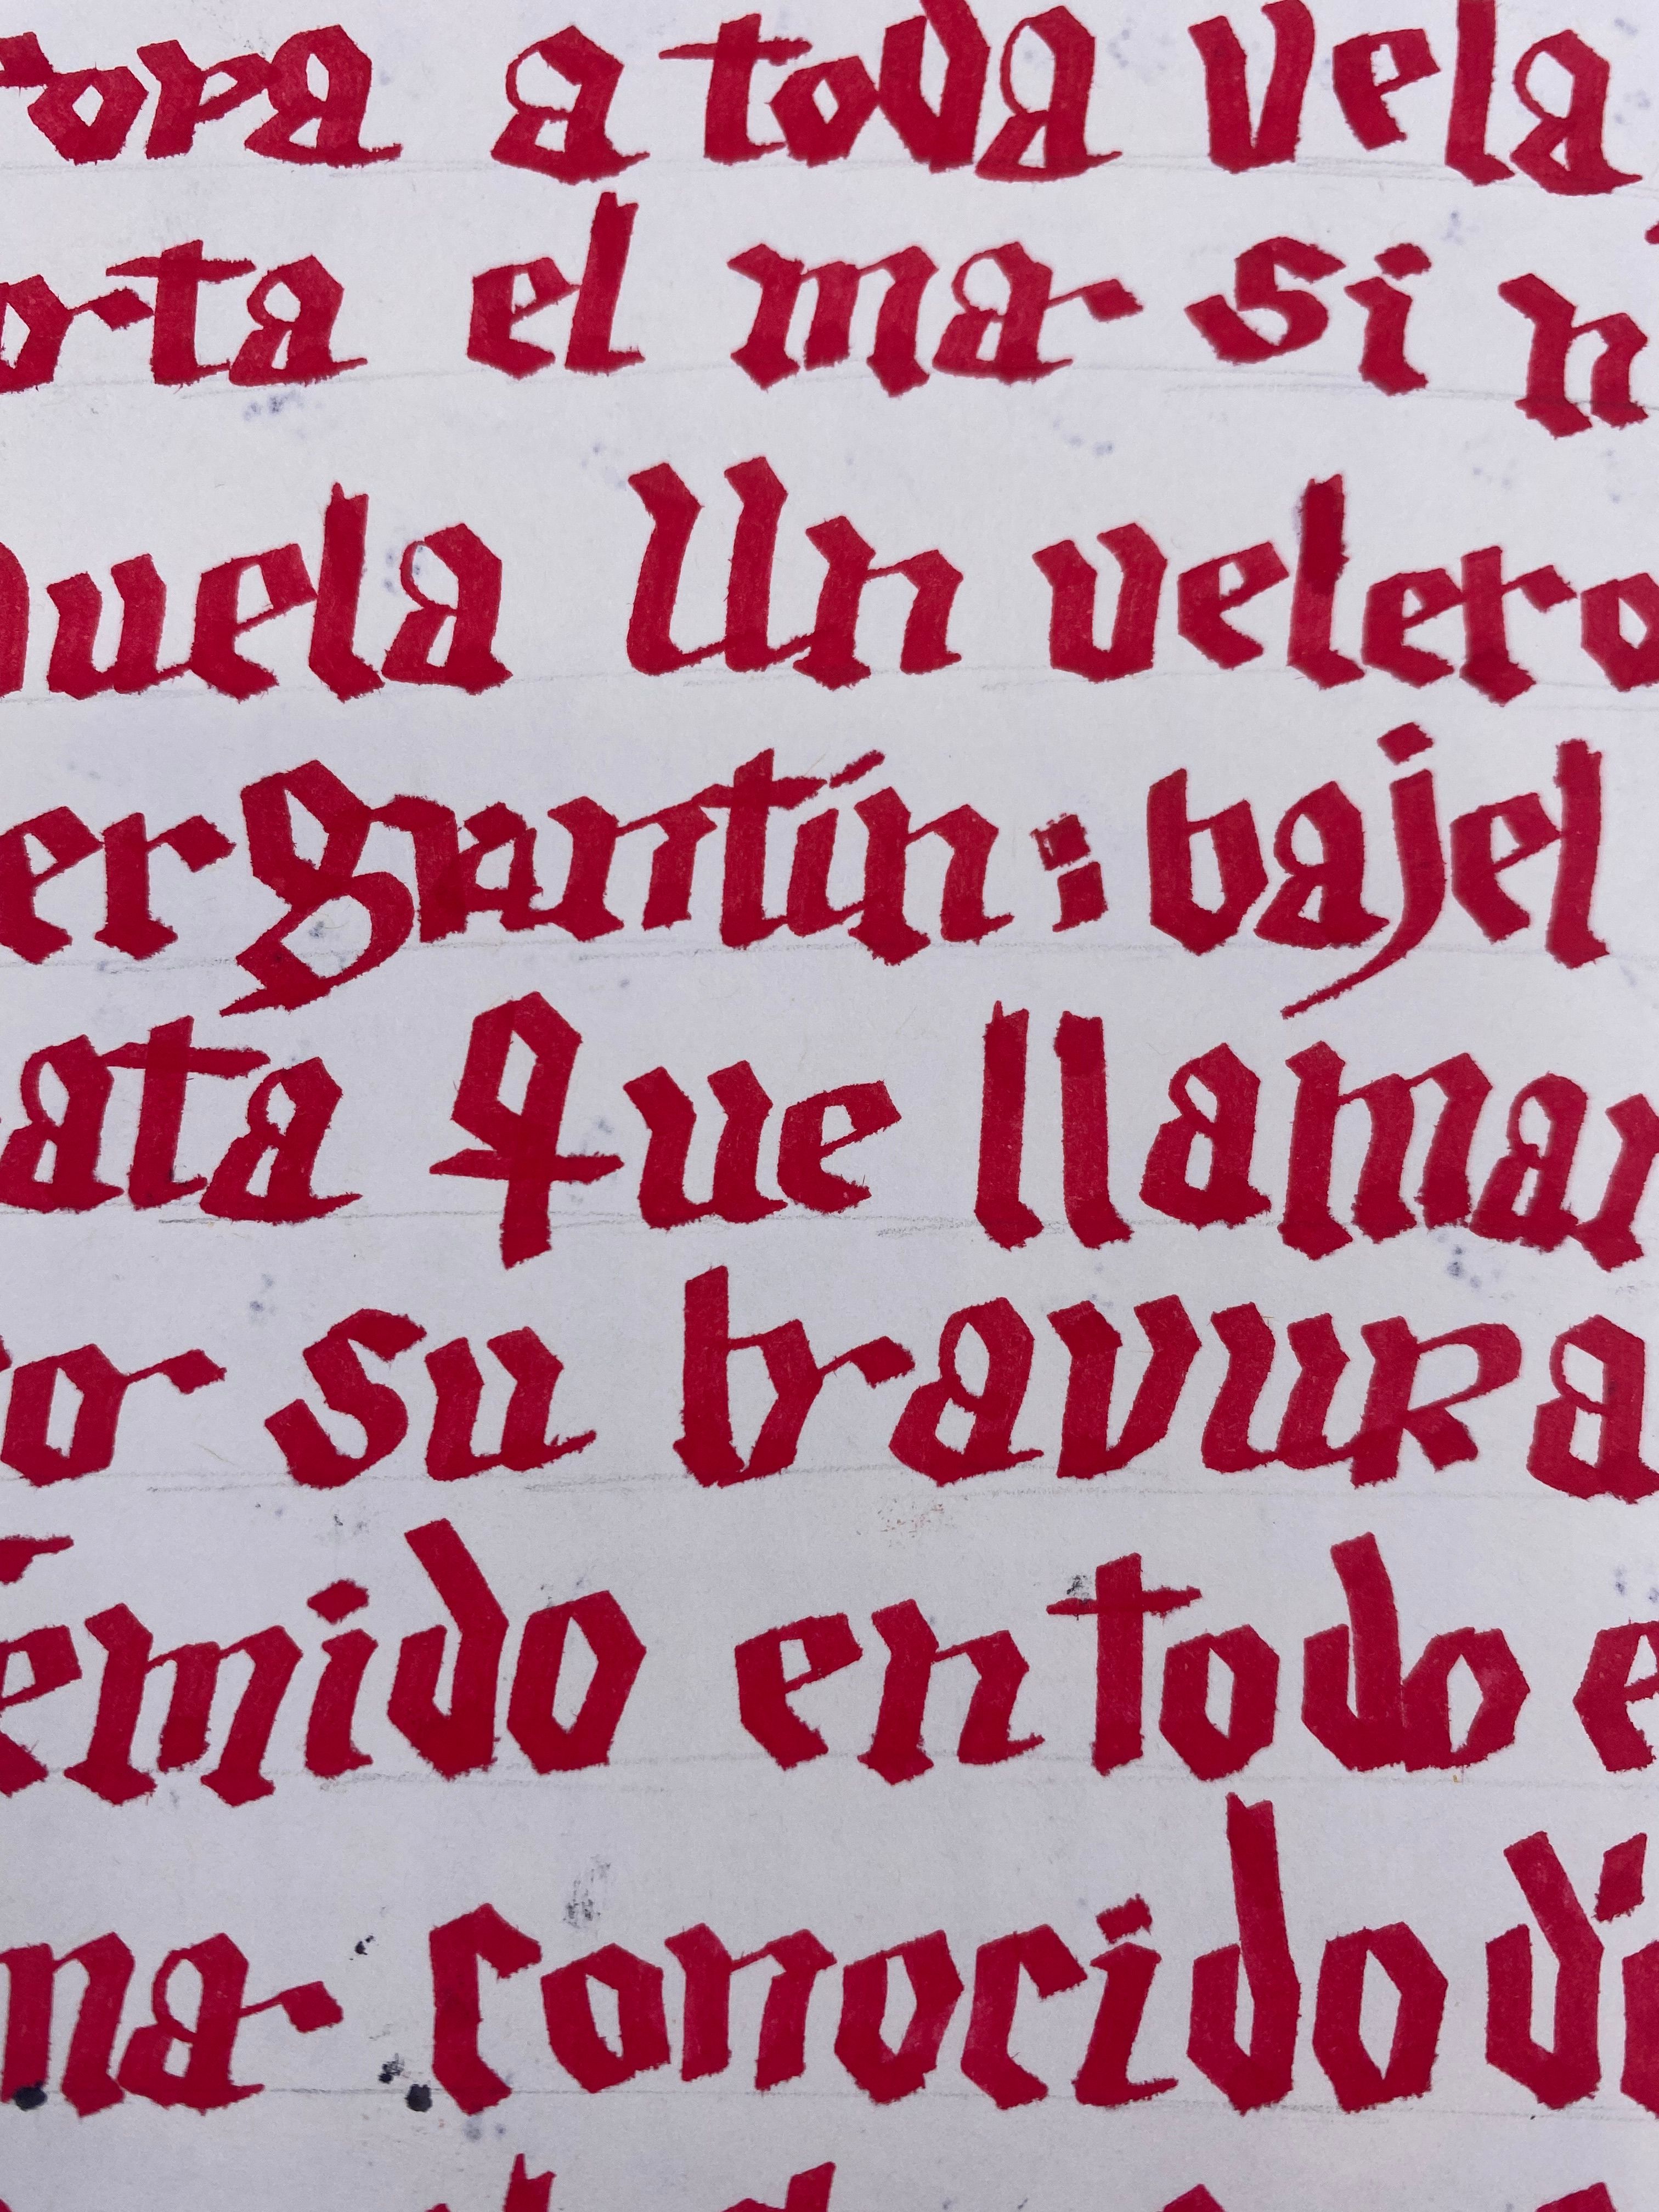 opa a toda vela
orta el mar si n
uela Un velero
ergrantín : bajel
ata que llaman
or su bravura
emido en todo e
mar conocido d